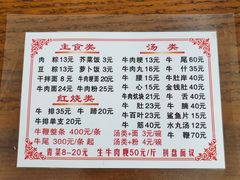 主食类
汤类
肉粽13元 芥菜饭3元 牛肉粳13元 牛尾60元
豆粽13元 萝卜饭3元 牛肉丸16元 牛什13元
干拌面8元 牛肉粳面20元 牛筋16元 牛肚21元
牛肉面24元 牛肉粉24元 牛心15元 金钱肚40元
红烧类
牛舌25元 牛肚岸40元
牛排35元 牛蹄20元 牛肚23元 牛腩23元
牛排单支20元 牛百叶23元 鲨鱼片15元
牛鞭整条400元/条 牛筋50元 水丸汤12元
牛尾300元/条起 汤类+面3元/碗 牛鞭70元
汤类+粉4元/碗
青菜8-20元 生牛肉粳50元/斤 拼盘面议